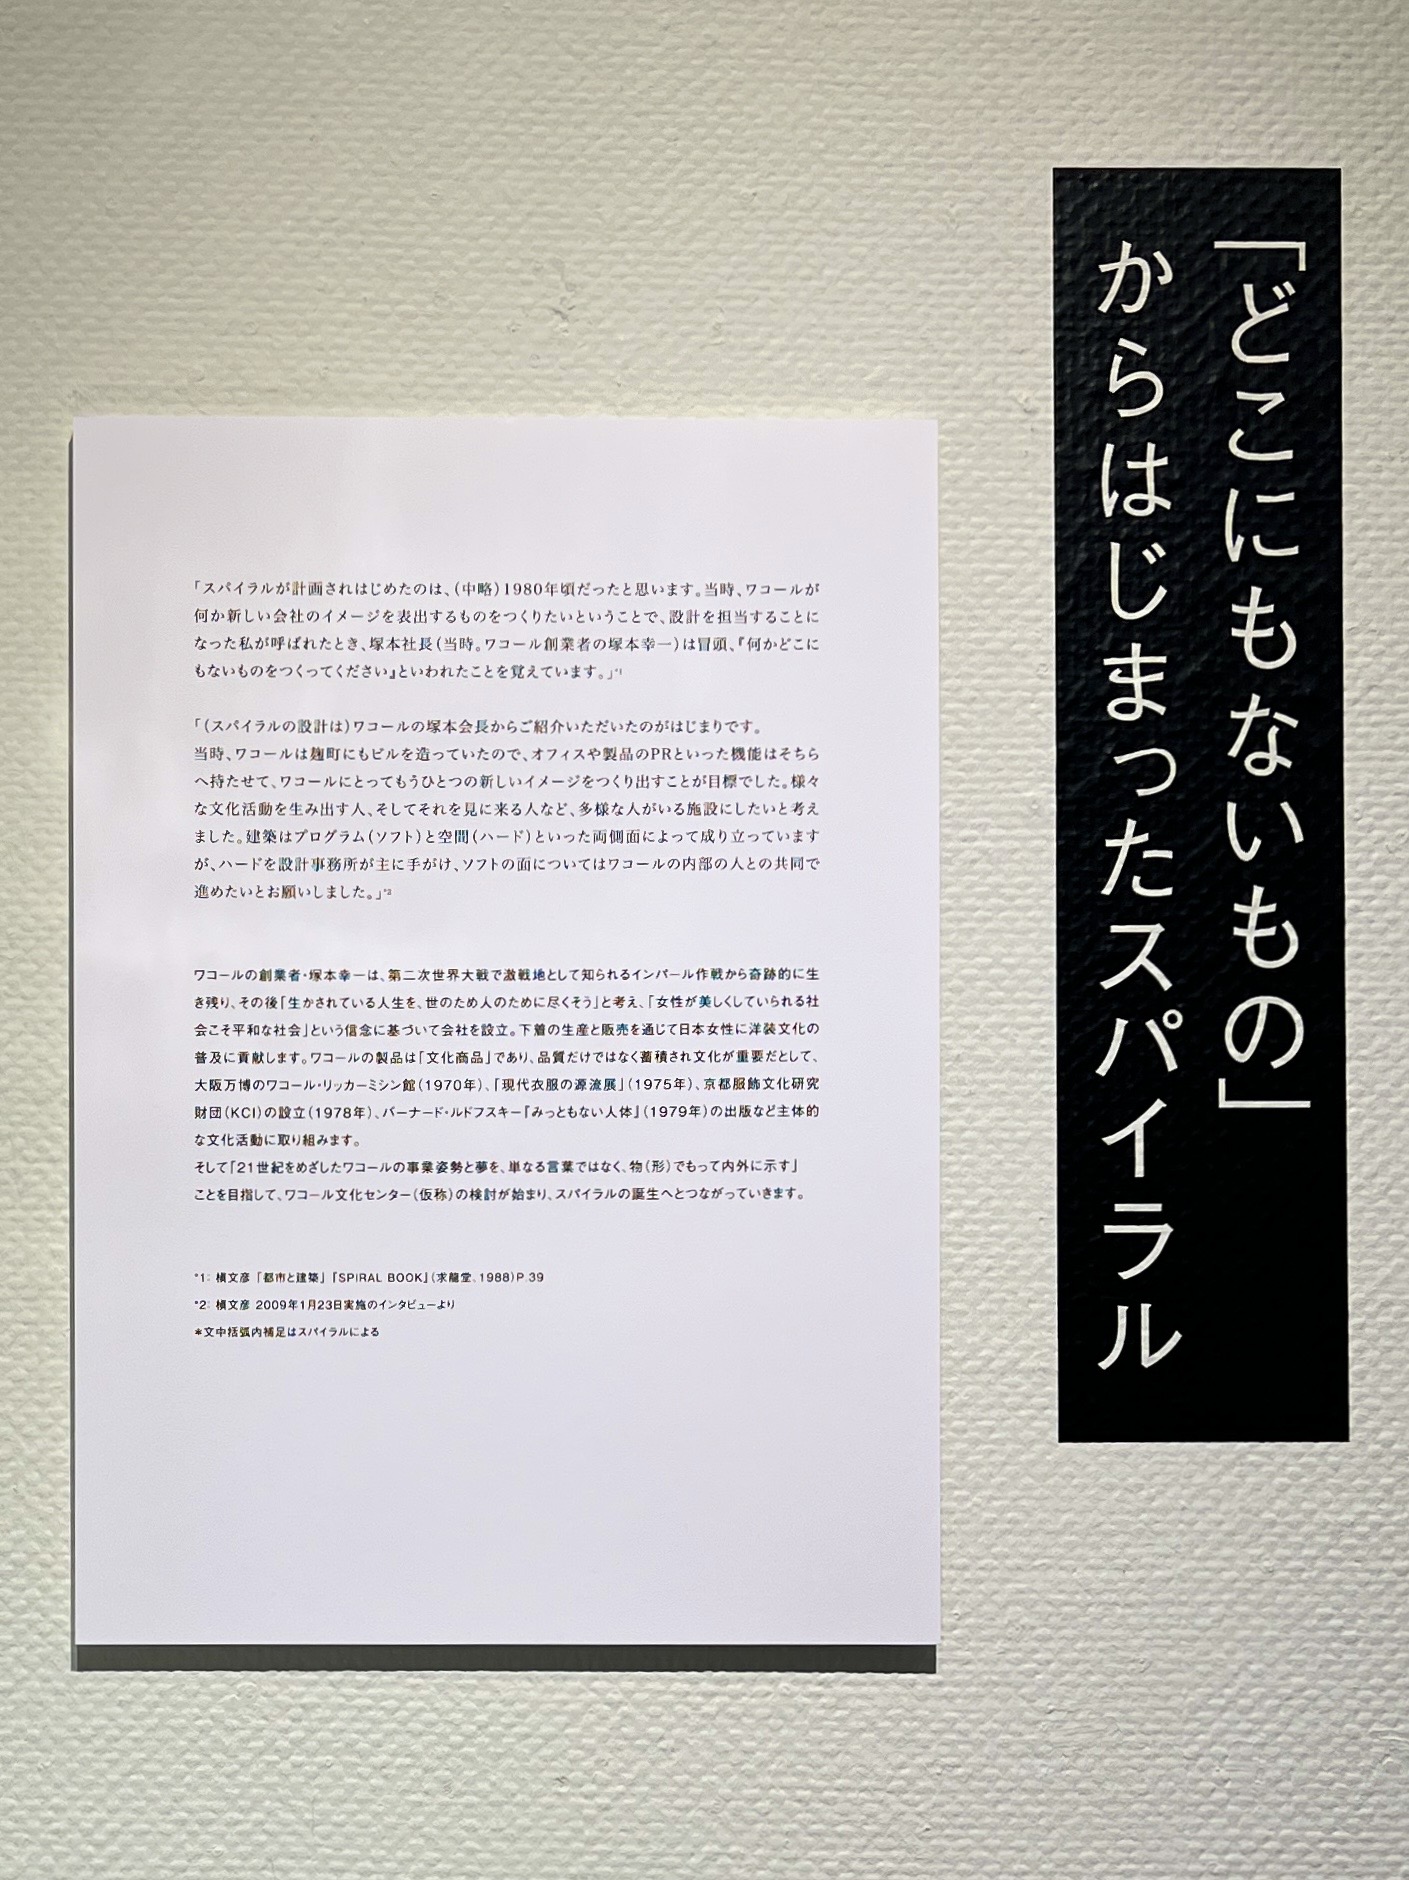 「どこにもないもの」
からはじまったスパイラル
「スパイラルが計画されはじめたのは、(中略)1980年頃だったと思います。当時、ワコールが
何か新しい会社のイメージを表出するものをつくりたいということで、設計を担当することに
なった私が呼ばれたとき、塚本社長(当時。ワコール創業者の塚本幸一)は冒頭、『何かどこに
もないものをつくってください』といわれたことを覚えています。」*1
「(スパイラルの設計は)ワコールの塚本会長からご紹介いただいたのがはじまりです。
当時、ワコールは麹町にもビルを造っていたので、オフィスや製品のPRといった機能はそちら
へ持たせて、ワコールにとってもうひとつの新しいイメージをつくり出すことが目標でした。様々
な文化活動を生み出す人、そしてそれを見に来る人など、多様な人がいる施設にしたいと考え
ました。建築はプログラム(ソフト)と空間(ハード)といった両側面によって成り立っています
が、ハードを設計事務所が主に手がけ、ソフトの面についてはワコールの内部の人との共同で
進めたいとお願いしました。」*2
ワコールの創業者・塚本幸一は、第二次世界大戦で激戦地として知られるインパール作戦から奇跡的に生
き残り、その後「生かされている人生を、世のため人のために尽くそう」と考え、「女性が美しくしていられる社
会こそ平和な社会」という信念に基づいて会社を設立。下着の生産と販売を通じて日本女性に洋装文化の
普及に貢献します。ワコールの製品は「文化商品」であり、品質だけではなく蓄積され文化が重要だとして、
大阪万博のワコール・リッカーミシン館(1970年)、「現代衣服の源流展」(1975年)、京都服飾文化研究
財団(KCI)の設立(1978年)、バーナード・ルドフスキー『みっともない人体』(1979年)の出版など主体的
な文化活動に取り組みます。
そして「21世紀をめざしたワコールの事業姿勢と夢を、単なる言葉ではなく、物(形)でもって内外に示す」
ことを目指して、ワコール文化センター(仮称)の検討が始まり、スパイラルの誕生へとつながっていきます。
*1: 槇文彦「都市と建築」『SPIRAL BOOK』(求龍堂、1988)P.39
*2: 槇文彦 2009年1月23日実施のインタビューより
＊文中括弧内補足はスパイラルによる